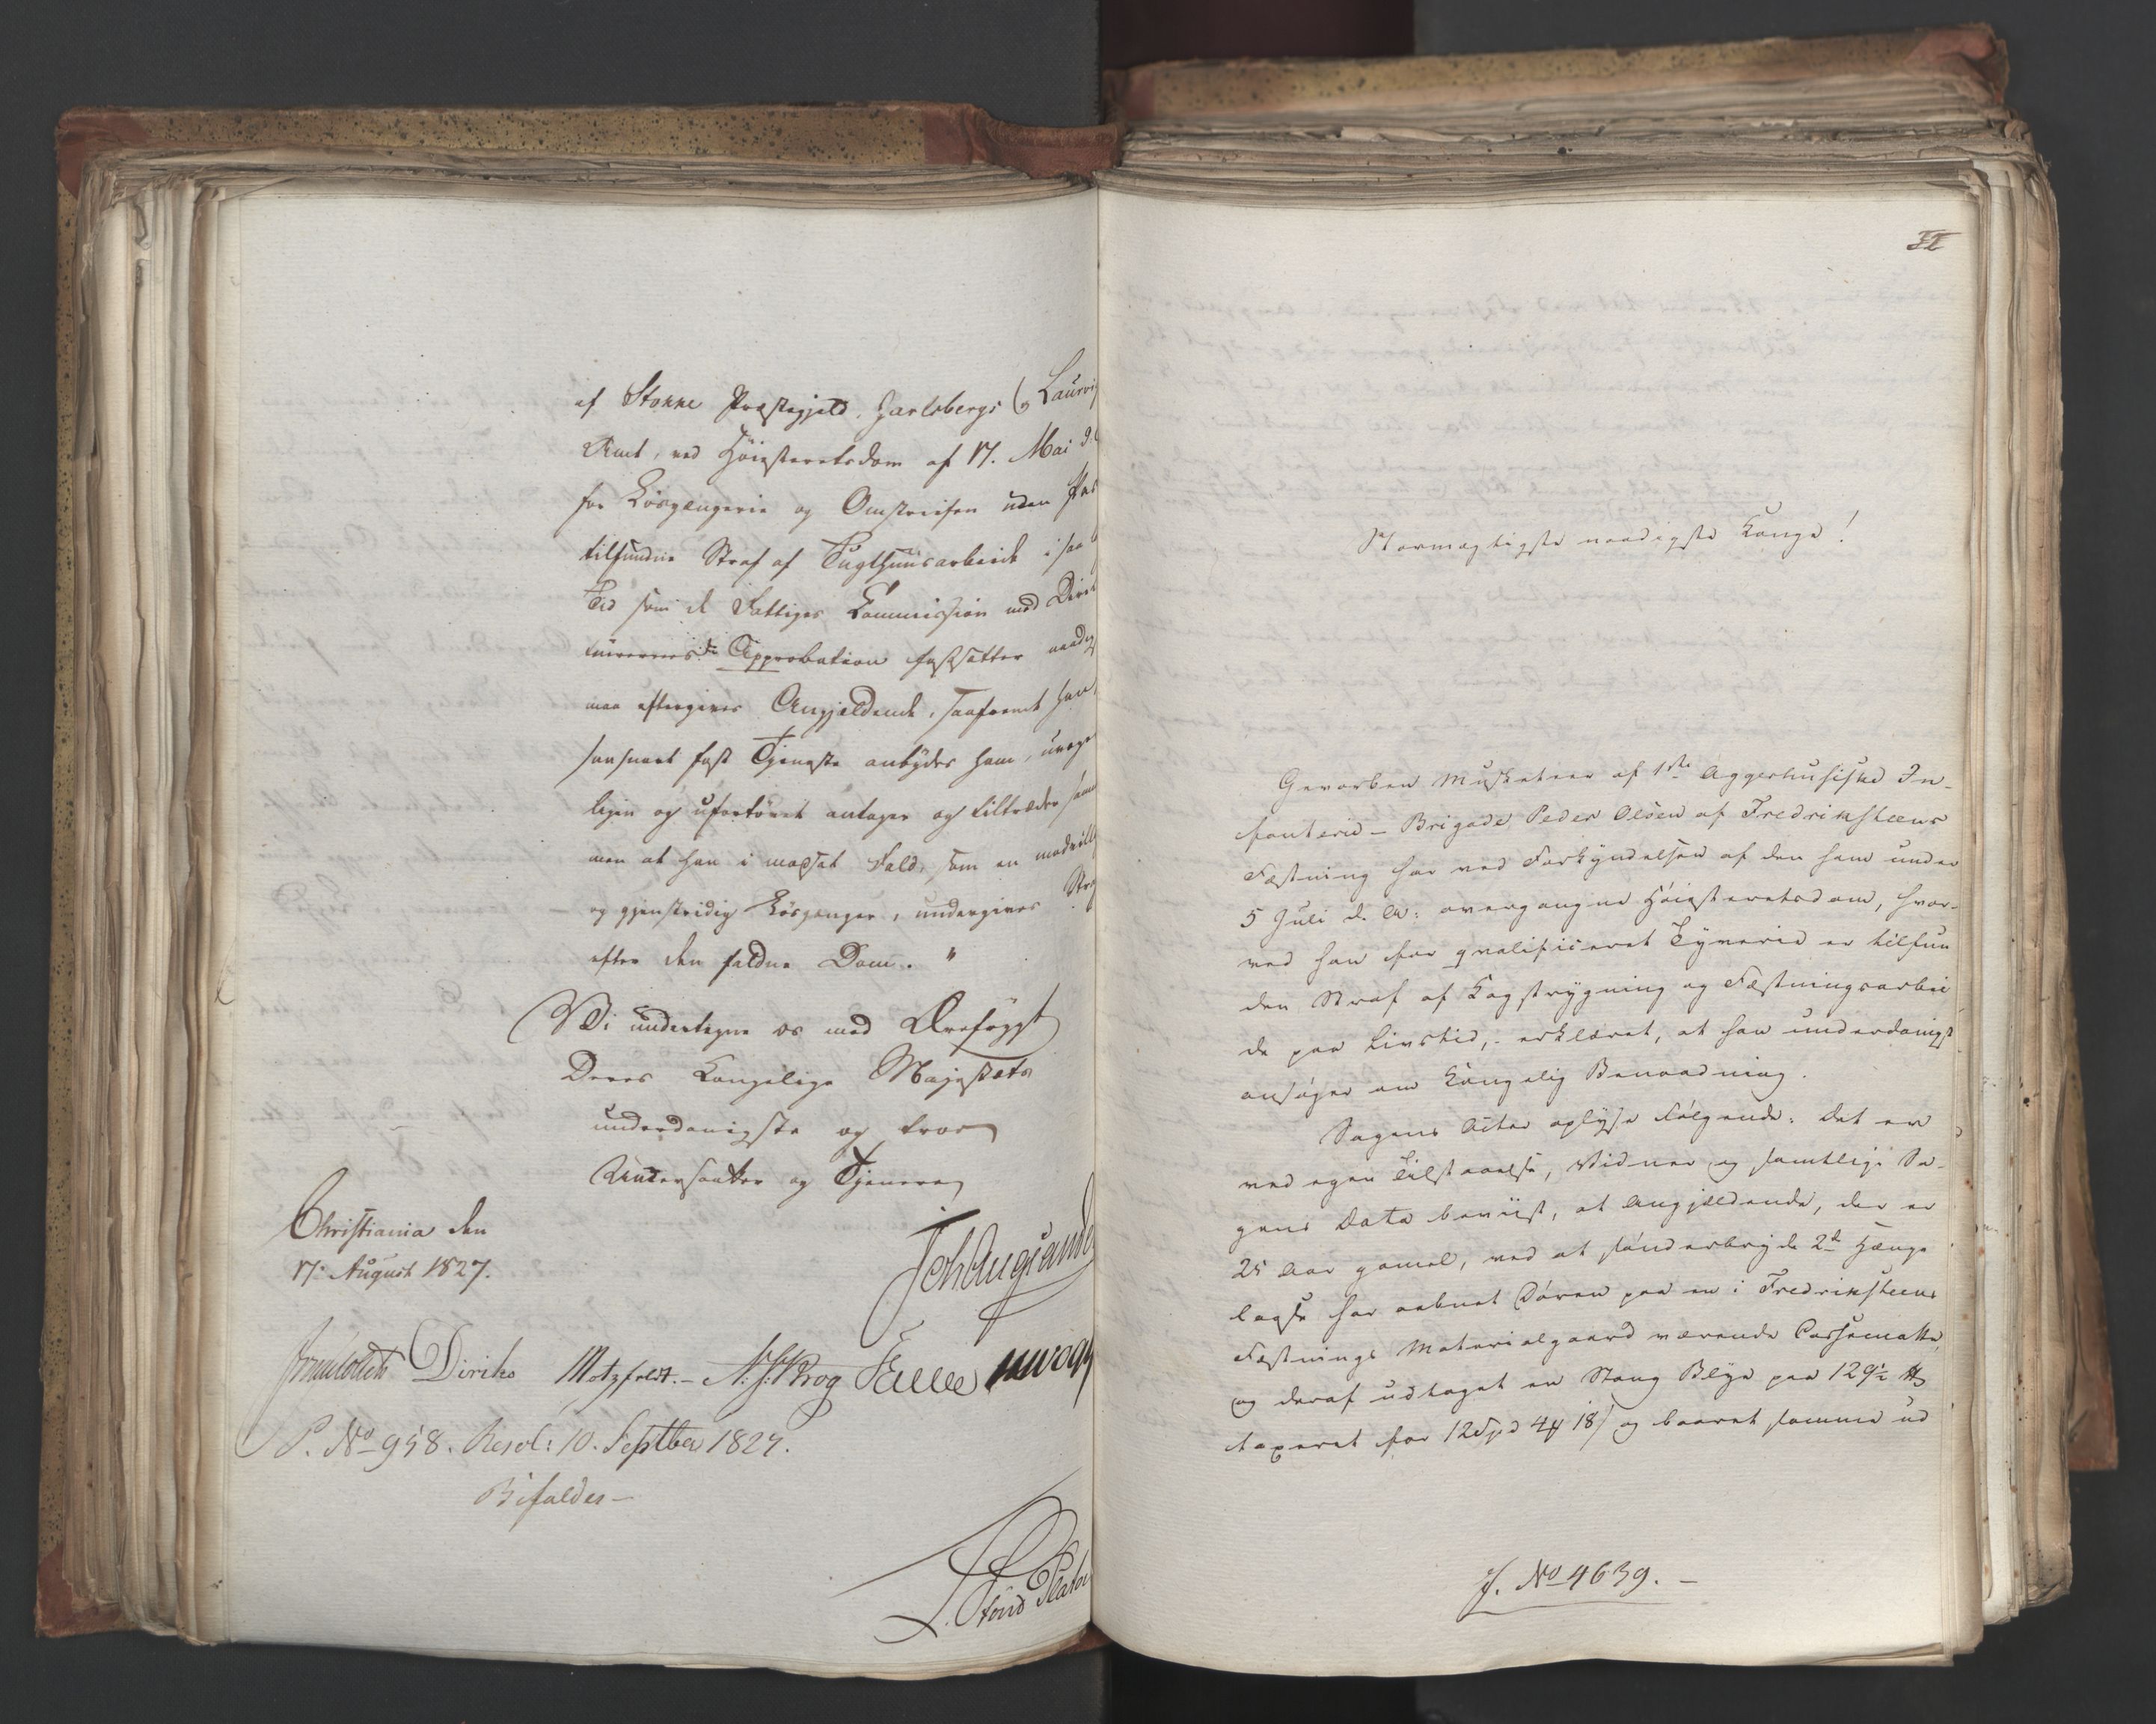 af Stokke Præstegjeld, Jarlsbergs og Laurvig
Amt, ved Høiesteretsdom af 17. Mai d.
for Løsgængerie og Omstreifen uden Pas
tilfundne Straf af Tugthuusarbeide i saa
Tid som de Fattiges Commission med Direc
teurernes Approbation fastsætter naadigst
maa eftergives Angjeldende, saafremt han,
saasnart fast Tjeneste anbydes ham, uvæger
ligen og ufortøvet antager og tiltræder samme
men at han i modsat Fald, som en modvillig
og gjenstridig Løsgænger, undergives Straf
efter den faldne Dom. "
Vi undertegne os med Ærefrygt
Deres Kongelige Majestæts
underdanigste og troe
Undersaatter og Tjenere
Christiania den
17. August 1827.
Joh Aug Sande
Diriks Motzfeldt. - N. J. Krog Fasting
P. No 958. Resol: 10. Septber 1827.
Bifaldes -
Stormægtigste naadigste Konge!
Gevorben Musketeer af 1ste Aggershusiske In-
fanterie-Brigade Peder Olsen af Fredriksteens
Fæstning har ved Forkyndelsen af den ham under
5 Juli d. A: overgangne Høiesteretsdom, hvor-
ved han for qvalificeret Tyverie er tilfun
den Straf af Kagstrygning og Fæstningsarbei
de paa Livstid, erklæret, at han underdanigst
ansøger om Kongelig Benaadning.
Sagens Acter oplyse Følgende: Det er
ved egen Tilstaaelse, Vidner og samtlige Sa-
gens Data beviist, at Angjældende, der er
25 Aar gamel, ved at sønderbryde 2de Hænge
laase har aabnet Døren paa en i Fredriksteens
Fæstnings Materialgaard værende Cassematte,
og deraf udtaget en Stang Blye paa 129½ ℔
taxeret for 12 Spd 4 ₰ 18 ß og baaret samme ud
J. No 4639. -